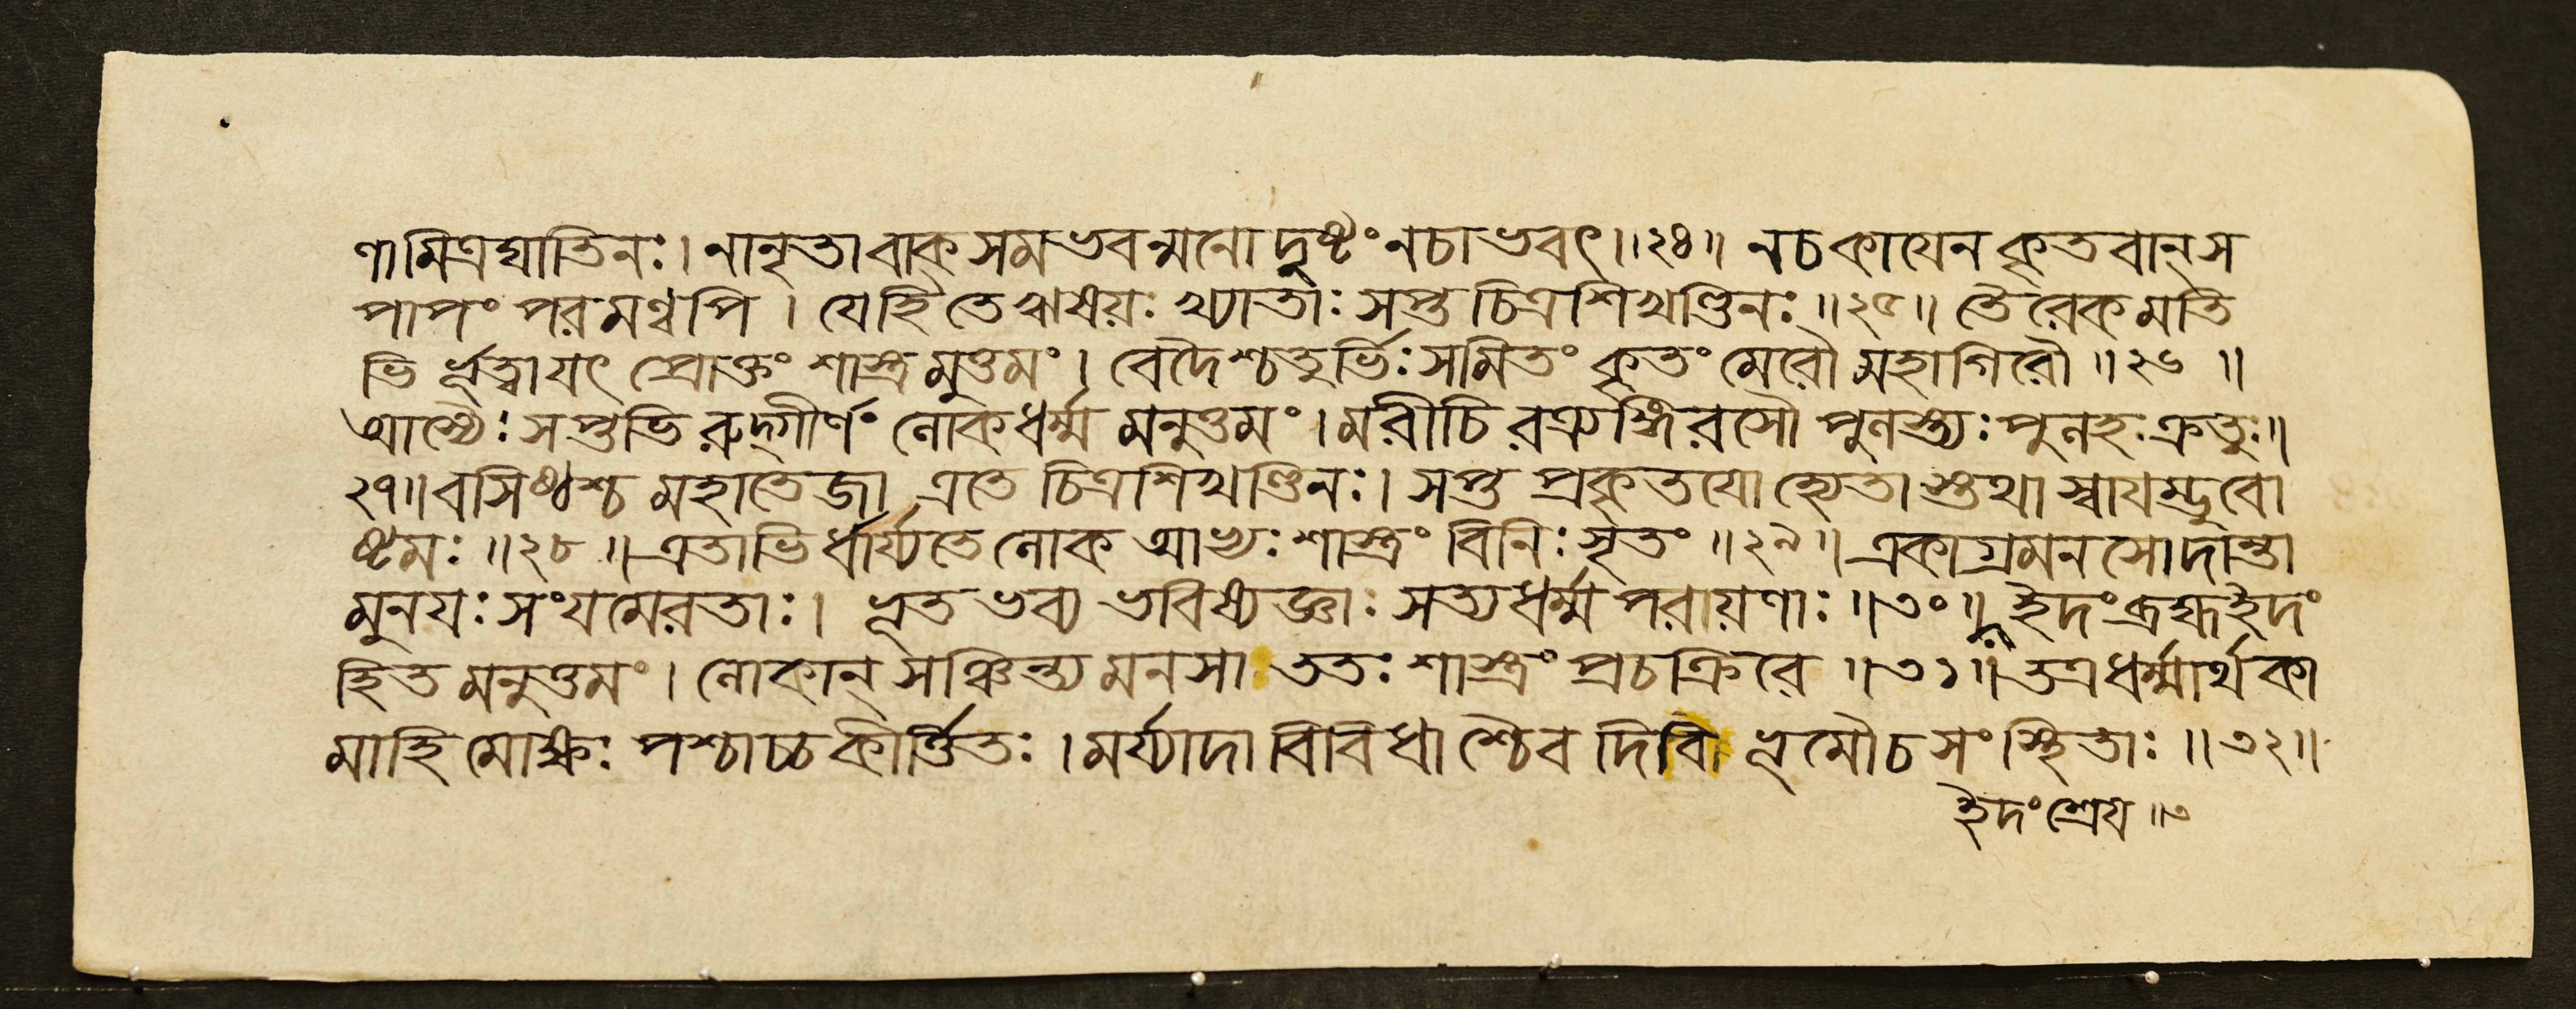 ণামিত্রঘাতিনঃ। নানৃতা বাক্ সমভবন্মনো দুষ্টং নচাভবৎ॥২৪॥ নচ কাযেন কৃতবান্ স
পাপং পরমণ্বপি। যে হি তে ঋষয়ঃ খ্যাতাঃ সপ্ত চিত্রশিখণ্ডিনঃ॥২৫॥ তৈরেকমতি
ভি র্ভূত্বা যৎ প্রোক্তং শাস্ত্রমুত্তমং। বেদৈশ্চতুর্ভিঃ সমিতং কৃতং মেরৌ মহাগিরৌ॥২৬॥
আস্যৈঃ সপ্তভি রুদ্গীর্ণং লোকধর্ম্ম মনুত্তমং। মরীচি রত্র্যঙ্গিরসৌ পুলস্ত্যঃ পুলহঃ ক্রতুঃ॥
২৭॥ বসিষ্ঠশ্চ মহাতেজা এতে চিত্রশিখণ্ডিনঃ। সপ্ত প্রকৃতযো হ্যেতা স্তথা স্বাযম্ভুবো
ষ্টমঃ॥২৮॥ এতাভি র্ধার্য্যতে লোক আভ্যঃ শাস্ত্রং বিনিঃসৃতং॥২৯॥ একাগ্রমনসো দান্তা
মুনযঃ সংযমেরতাঃ। ভূত ভব্য ভবিষ্যজ্ঞাঃ সত্যধর্ম্ম পরায়ণাঃ॥৩০॥ ইদং ব্রহ্ম ইদং
হিত মনুত্তমং। লোকান্ সঞ্চিন্ত্য মনসা ততঃ শাস্ত্রং প্রচক্রিরে॥৩১॥ তত্র ধর্ম্মার্থ কা
মা হি মোক্ষঃ পশ্চাচ্চ কীর্ত্তিতঃ। মর্য্যাদা বিবিধাশ্চৈব দিবি ভূমৌ চ সংস্থিতাঃ॥৩২॥
ইদং শ্রেয॥৩